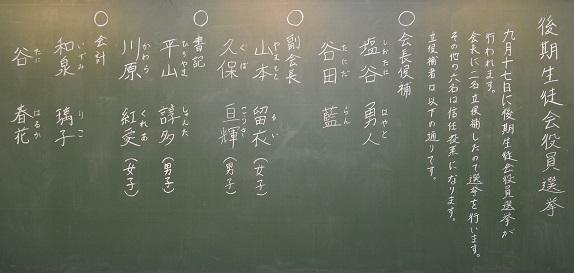 後期生徒会役員選挙
九月十七日に後期生徒会役員選挙が
行われます。
会長に二名立候補したので選挙を行います。
その他の六名は信任投票になります。
立候補者は以下の通りです。
○会長候補
塩谷 勇人
しおたに はやと
谷田 藍
たにだ らん
○副会長
山本 留衣(女子)
やまもと るい
久保 亘輝(男子)
くぼ こうき
○書記
平山 諄多(男子)
ひらやま しゅんた
川原 紅愛(女子)
かわはら くれあ
○会計
和泉 璃子
いずみ りこ
谷 春花
たに はるか